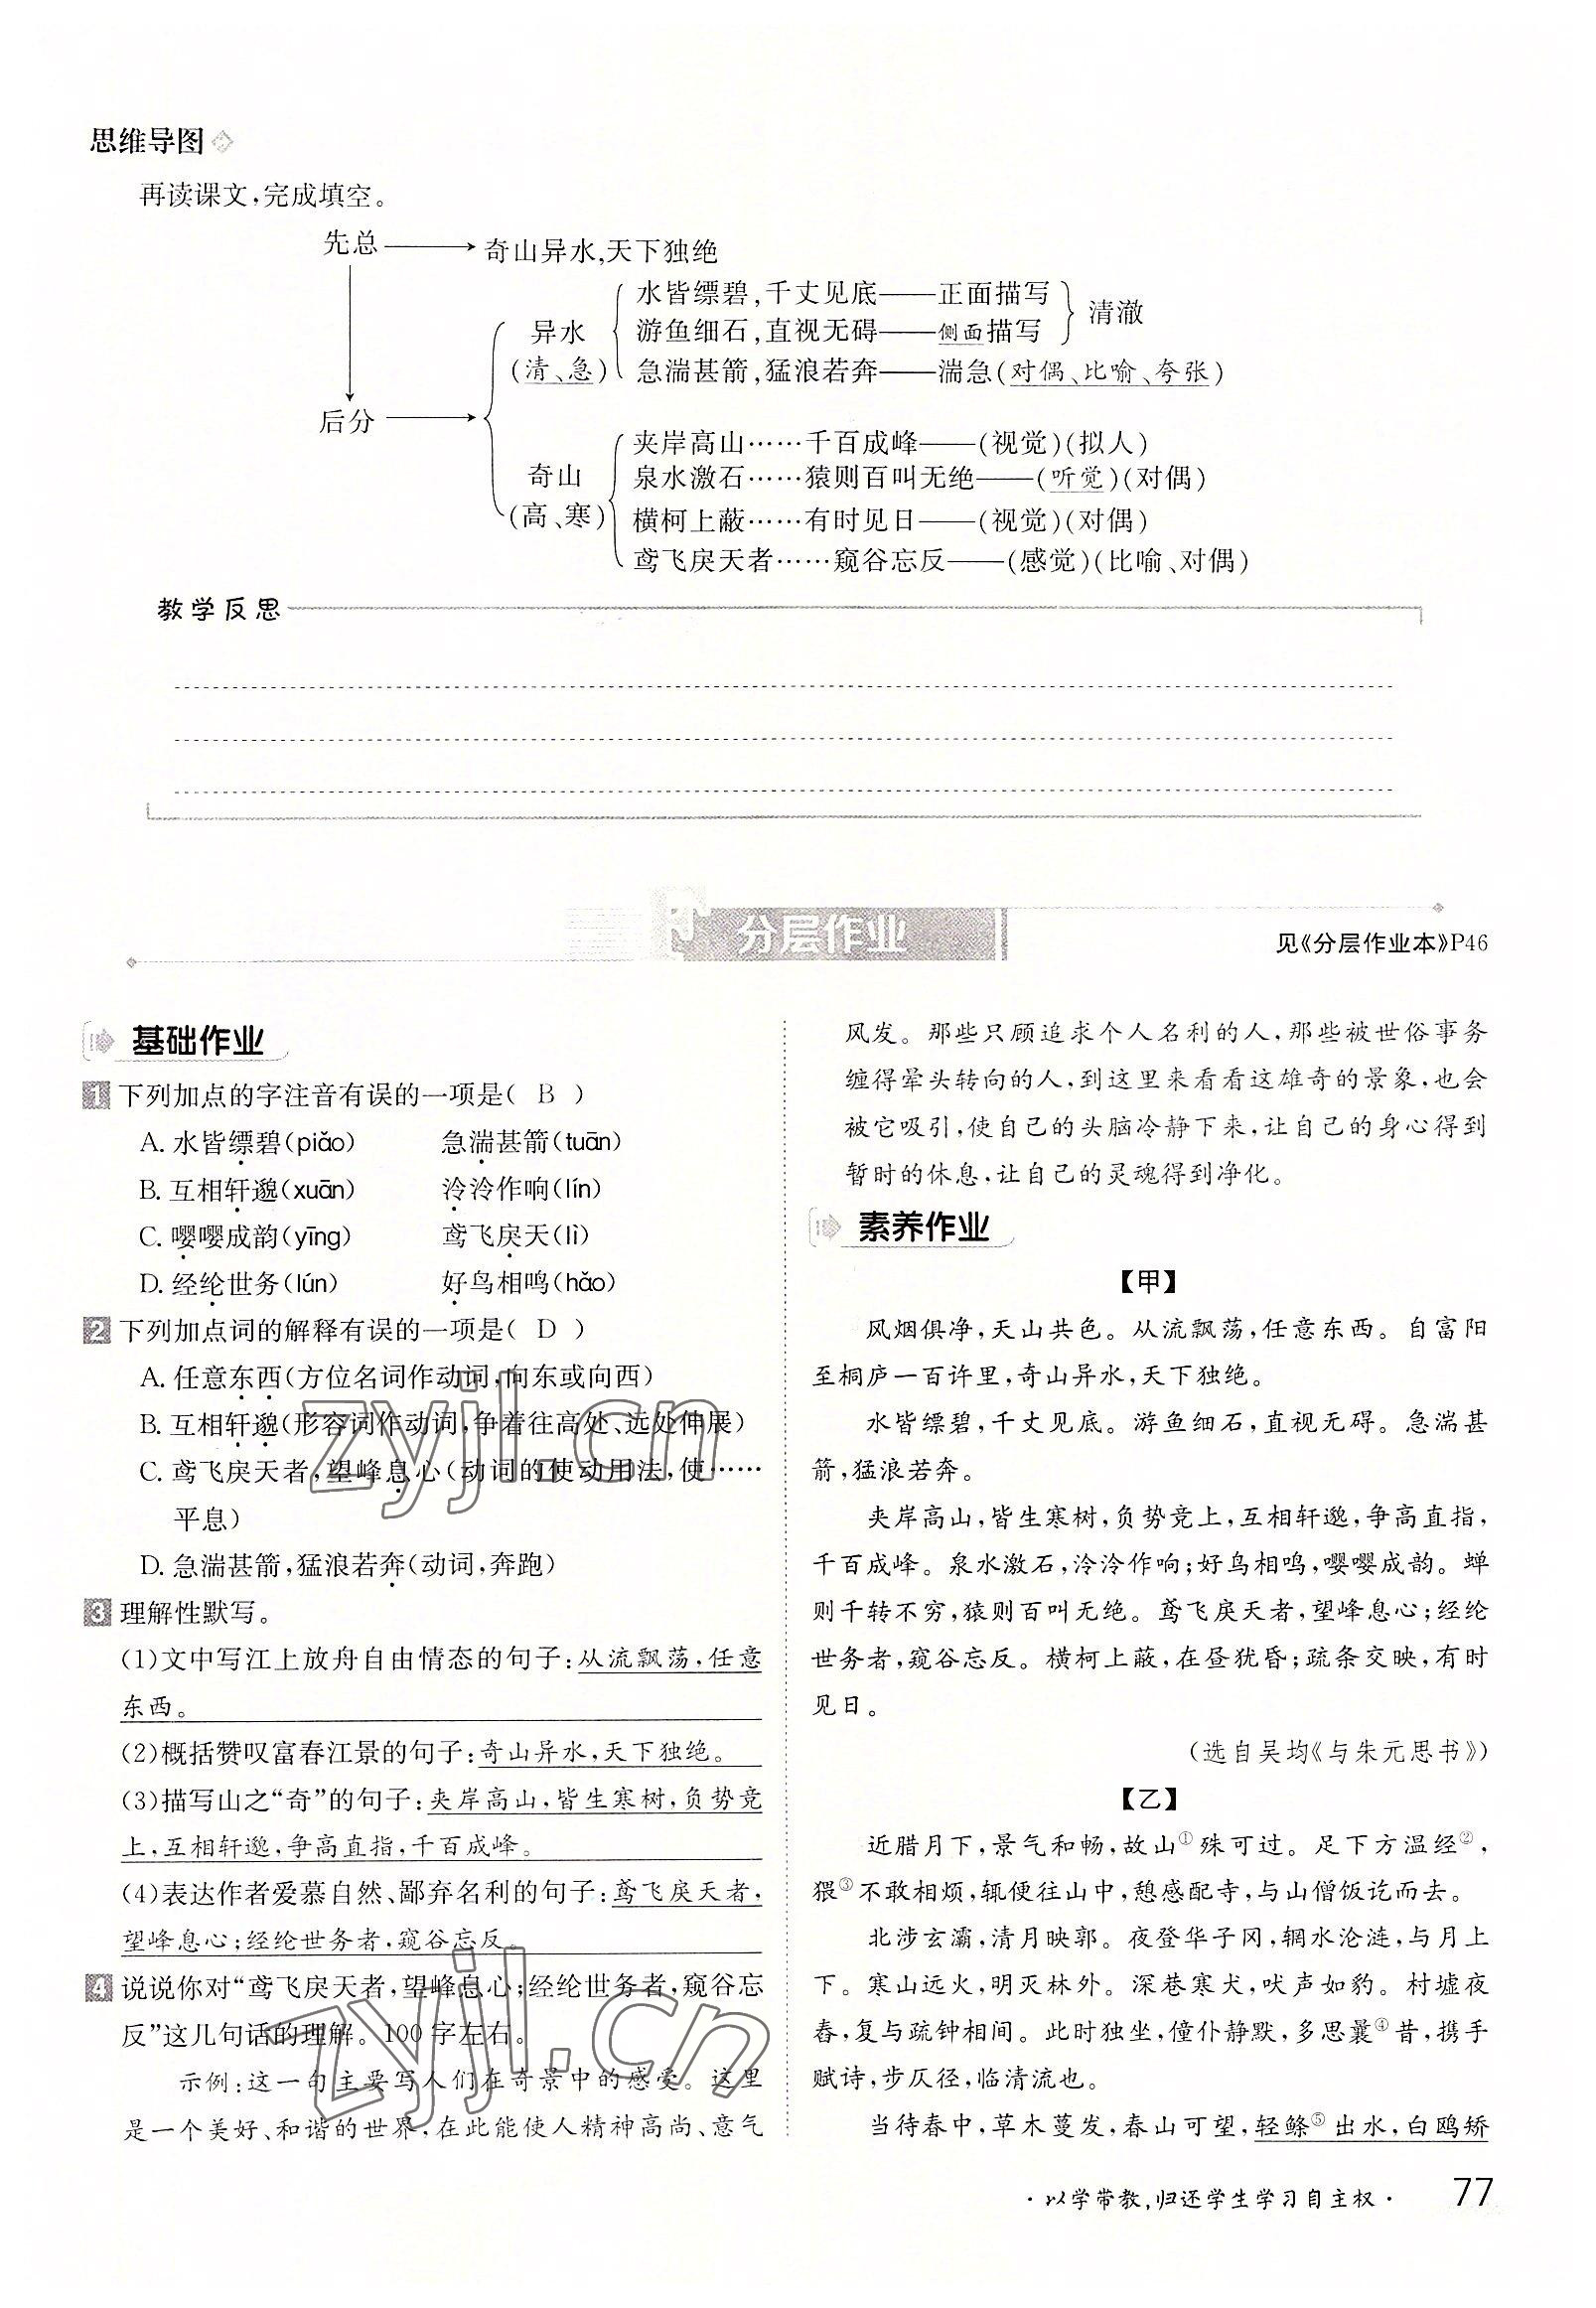 思维导图
再读课文,完成填空。
先总 奇山异水,天下独绝
水皆缥碧,千丈见底——正面描写
异水 游鱼细石,直视无碍——侧面描写 清澈
(清、急) 急湍甚箭,猛浪若奔——湍急(对偶、比喻、夸张)
后分
夹岸高山……千百成峰——(视觉)(拟人)
奇山 泉水激石……猿则百叫无绝——(听觉)(对偶)
(高、寒) 横柯上蔽……有时见日——(视觉)(对偶)
鸢飞戾天者……窥谷忘反——(感觉)(比喻、对偶)
教学反思
分层作业
见《分层作业本》P46
基础作业
1 下列加点的字注音有误的一项是( B )
A. 水皆缥碧(piǎo) 急湍甚箭(tuān)
B. 互相轩邈(xuān) 泠泠作响(lín)
C. 嘤嘤成韵(yīng) 鸢飞戾天(lì)
D. 经纶世务(lún) 好鸟相鸣(hǎo)
2 下列加点词的解释有误的一项是( D )
A. 任意东西(方位名词作动词,向东或向西)
B. 互相轩邈(形容词作动词,争着往高处、远处伸展)
C. 鸢飞戾天者,望峰息心(动词的使动用法,使……
平息)
D. 急湍甚箭,猛浪若奔(动词,奔跑)
3 理解性默写。
(1)文中写江上放舟自由情态的句子:从流飘荡,任意
东西。
(2)概括赞叹富春江景的句子:奇山异水,天下独绝。
(3)描写山之“奇”的句子:夹岸高山,皆生寒树,负势竞
上,互相轩邈,争高直指,千百成峰。
(4)表达作者爱慕自然、鄙弃名利的句子:鸢飞戾天者,
望峰息心;经纶世务者,窥谷忘反。
4 说说你对“鸢飞戾天者,望峰息心;经纶世务者,窥谷忘
反”这几句话的理解。100字左右。
示例:这一句主要写人们在奇景中的感受。这里
是一个美好、和谐的世界,在此能使人精神高尚、意气
风发。那些只顾追求个人名利的人,那些被世俗事务
缠得晕头转向的人,到这里来看看这雄奇的景象,也会
被它吸引,使自己的头脑冷静下来,让自己的身心得到
暂时的休息,让自己的灵魂得到净化。
素养作业
【甲】
风烟俱净,天山共色。从流飘荡,任意东西。自富阳
至桐庐一百许里,奇山异水,天下独绝。
水皆缥碧,千丈见底。游鱼细石,直视无碍。急湍甚
箭,猛浪若奔。
夹岸高山,皆生寒树,负势竞上,互相轩邈,争高直指,
千百成峰。泉水激石,泠泠作响;好鸟相鸣,嘤嘤成韵。蝉
则千转不穷,猿则百叫无绝。鸢飞戾天者,望峰息心;经纶
世务者,窥谷忘反。横柯上蔽,在昼犹昏;疏条交映,有时
见日。
(选自吴均《与朱元思书》)
【乙】
近腊月下,景气和畅,故山①殊可过。足下方温经②,
猥③不敢相烦,辄便往山中,憩感配寺,与山僧饭讫而去。
北涉玄灞,清月映郭。夜登华子冈,辋水沦涟,与月上
下。寒山远火,明灭林外。深巷寒犬,吠声如豹。村墟夜
舂,复与疏钟相间。此时独坐,僮仆静默,多思曩④昔,携手
赋诗,步仄径,临清流也。
当待春中,草木蔓发,春山可望,轻鲦⑤出水,白鸥矫
·以学带教,归还学生学习自主权· 77
zyjl.cn
zyjl.cn